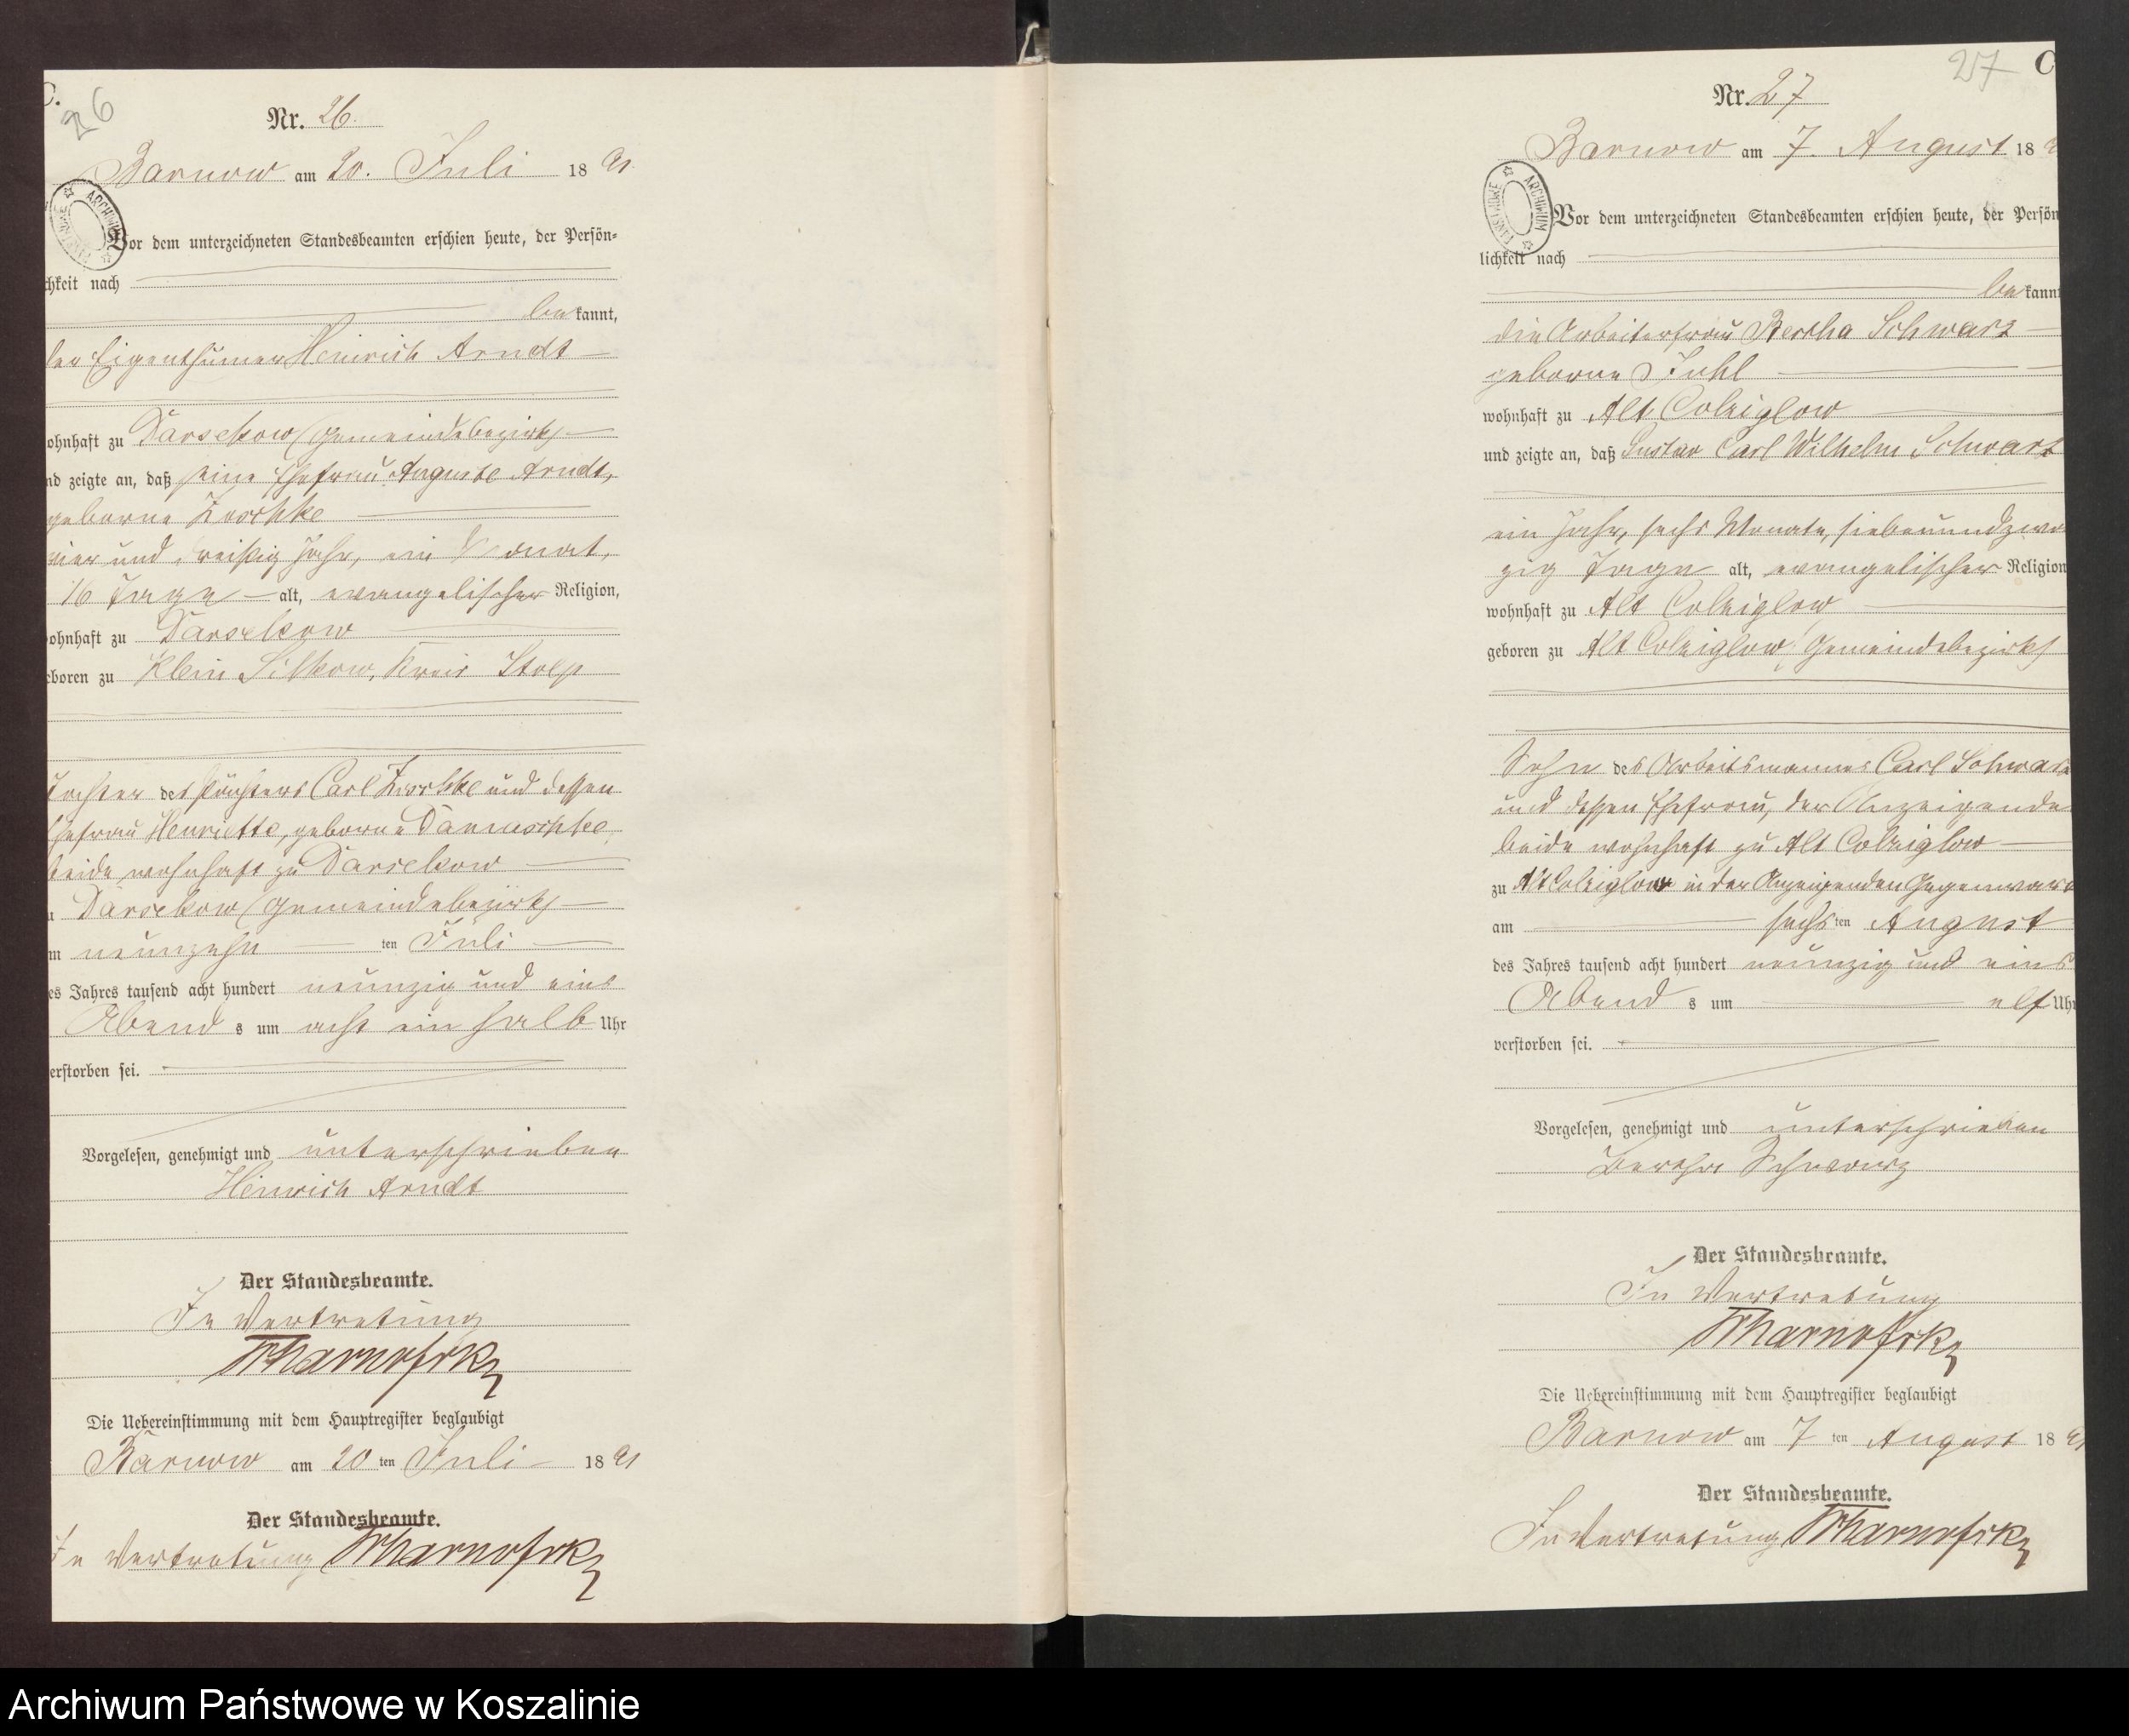 C.
26
Nr. 26.
Barnow am 20. Juli 18 91.
ARCHIWUM
Vor dem unterzeichneten Standesbeamten erschien heute, der Persön-
chkeit nach
be kannt,
der Eigenthümer Heinrich Arndt
ohnhaft zu Darsekow (Gemeindebezirk)
nd zeigte an, daß seine Ehefrau Auguste Arndt,
geborne Koschke
vier und dreißig Jahr, ein Monat,
16 Tage alt, evangelischer Religion,
ohnhaft zu Darsekow
eboren zu Klein Silkow, Kreis Stolp
Tochter des Pächters Carl und dessen
Ehefrau Henriette, geborne Damaschke,
beide wohnhaft zu Darsekow
u Darsekow (Gemeindebezirk)
m neunzehn ten Juli
es Jahres tausend acht hundert neunzig und eins
Abend s um acht ein halb Uhr
erstorben sei.
Vorgelesen, genehmigt und unterschrieben
Heinrich Arndt
Der Standesbeamte.
In Vertretung
Die Uebereinstimmung mit dem Hauptregister beglaubigt
Barnow am 20 ten Juli 18 91
Der Standesbeamte.
In Vertretung
27 C
Nr. 27
Barnow am 7. August 18 9
ARCHIWUM
Vor dem unterzeichneten Standesbeamten erschien heute, der Persön
lichkeit nach
be kannt
die Arbeiterfrau Bertha Schwarz
geborne Juhl
wohnhaft zu Alt Colziglow
und zeigte an, daß Gustav Carl Wilhelm Schwarz
ein Jahr, sechs Monate, siebenundzwan
zig Tage alt, evangelischer Religion
wohnhaft zu Alt Colziglow
geboren zu Alt Colziglow (Gemeindebezirk)
Sohn des Arbeitsmannes Carl Schwarz
und dessen Ehefrau, der Anzeigende
beide wohnhaft zu Alt Colziglow
zu Alt Colziglow in der Anzeigenden Gegenwart
am sechs ten August
des Jahres tausend acht hundert neunzig und eins
Abend s um elf Uhr
verstorben sei.
Vorgelesen, genehmigt und unterschrieben
Bertha Schwarz
Der Standesbeamte.
In Vertretung
Die Uebereinstimmung mit dem Hauptregister beglaubigt
Barnow am 7 ten August 18 91
Der Standesbeamte.
In Vertretung
Archiwum Państwowe w Koszalinie